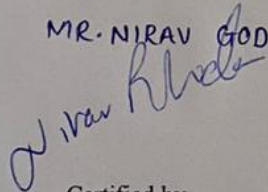 MR. NIRAV GOD
Nirav
Certified by